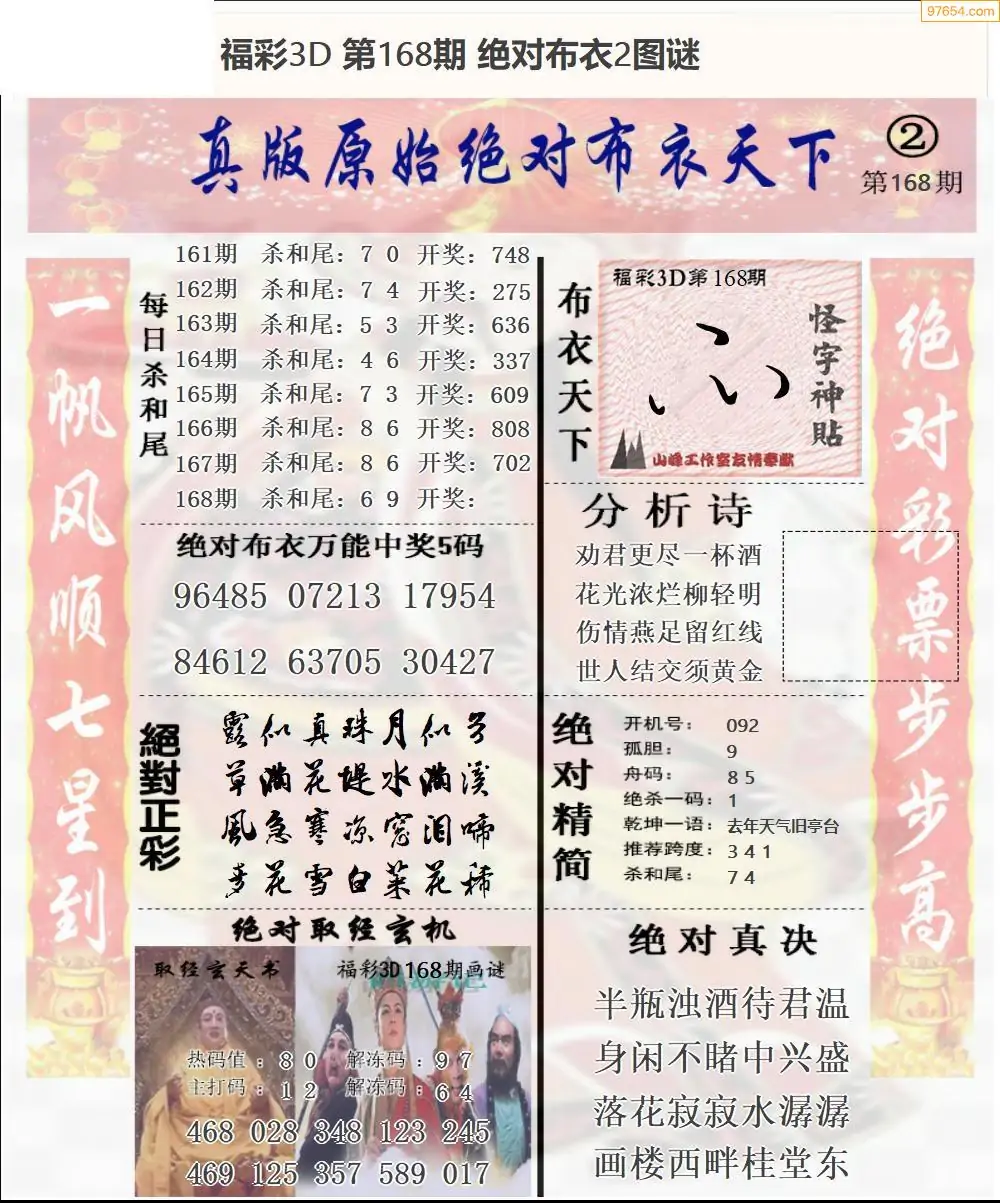 97654.com
福彩3D 第168期 绝对布衣2图谜
真版原始绝对布衣天下
②
第168期
一帆风顺七星到
每日杀和尾
161期 杀和尾：7 0 开奖：748
162期 杀和尾：7 4 开奖：275
163期 杀和尾：5 3 开奖：636
164期 杀和尾：4 6 开奖：337
165期 杀和尾：7 3 开奖：609
166期 杀和尾：8 6 开奖：808
167期 杀和尾：8 6 开奖：702
168期 杀和尾：6 9 开奖：
绝对布衣万能中奖5码
96485 07213 17954
84612 63705 30427
絕對正彩
露似真珠月似弓
草满花堤水满溪
風急寒凉窓泪啼
麦花雪白菜花稀
绝对取经玄机
取经玄天书
福彩3D168期画谜
热码值：8 0 解冻码：9 7
主打码：1 2 解冻码：6 4
468 028 348 123 245
469 125 357 589 017
布衣天下
福彩3D第168期
怪字神貼
山峰工作室友情奉献
分析诗
劝君更尽一杯酒
花光浓烂柳轻明
伤情燕足留红线
世人结交须黄金
绝对精简
开机号：092
孤胆：9
舟码：8 5
绝杀一码：1
乾坤一语：去年天气旧亭台
推荐跨度：3 4 1
杀和尾：7 4
绝对真决
半瓶浊酒待君温
身闲不睹中兴盛
落花寂寂水潺潺
画楼西畔桂堂东
绝对彩票步步高